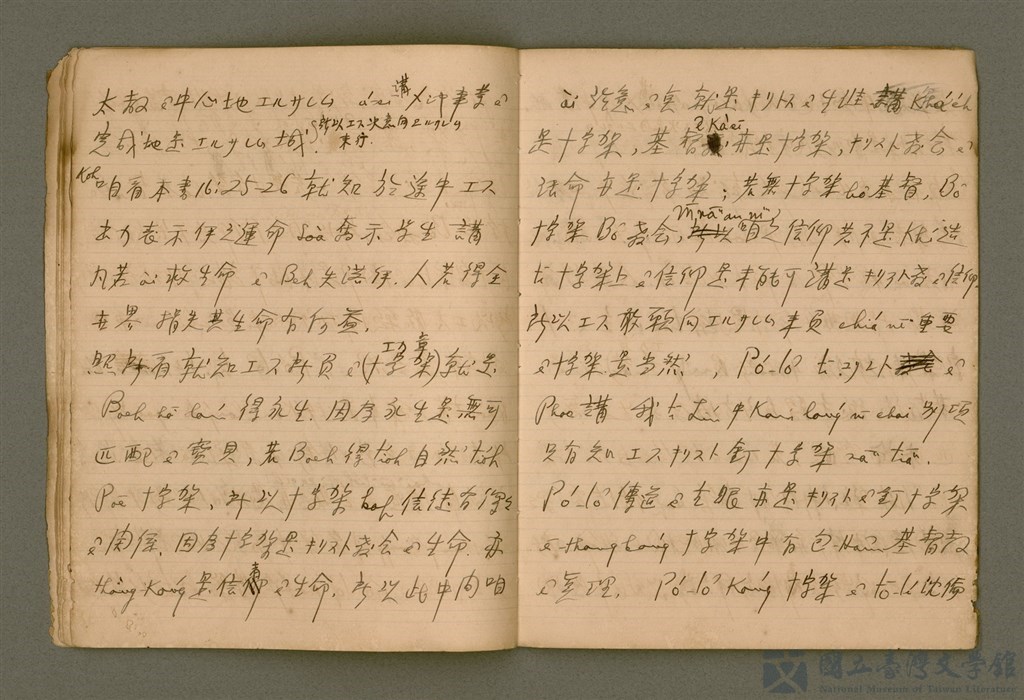 太教 ê 中心地 エルサレム 講 メシヤ事業 ê
所以エス決意向エルサレム
完成地是エルサレム城。来行。
Koh 咱看本書16:25-26 就知 於途中エス
表示伊之運命 Soà 教示学生 講
凡若 ài 救生命 ê Beh 失落伊. 人若得全
世界 損失其生命有何益.
照所有就知エス所負 ê (十字架) 就是
Boeh hō͘ lán 得永生. 因為永生是無可
匹配 ê 寶貝, 若 Boeh 得 tio̍h 自然 tio̍h
Pōe 十字架, 所以十字架 kah 信徒有
ê 関係. 因為十字架是キリスト教会 ê 生命. 亦
thang-Kóng 是信者 ê 生命. 所以此中間咱
ài 注意 ê 是 就是 キリスト ê 生涯 講 Khah
是十字架, 基督教 亦是十字架, キリスト教会 ê
命亦是十字架; 若無十字架 bô 基督, Bô
十字架 Bô 教会, M̄-nā an-ni 咱之信仰若不是 Khí 造
tī 十字架上 ê 信仰是未能可講是キリスト教 ê 信仰
所以エス敢願向エルサレム来負 chiá nī 重要
ê 十字架是当然, Pó-lô tī コリント ê
Phoe 講 我 tī Lín 中 Kan lóng m̄ chai 別項
只有知エスキリスト釘十字架 nā-tiāⁿ.
Pó-lô 傳道 ê 主眼亦是キリスト ê 釘十字架
ê thang kóng 十字架中有包 Hâm 基督教
ê 真理. Pó-lô Kóng 十字架 ê tō-lí 沈倫
國立臺灣文學館
National Museum of Taiwan Literature